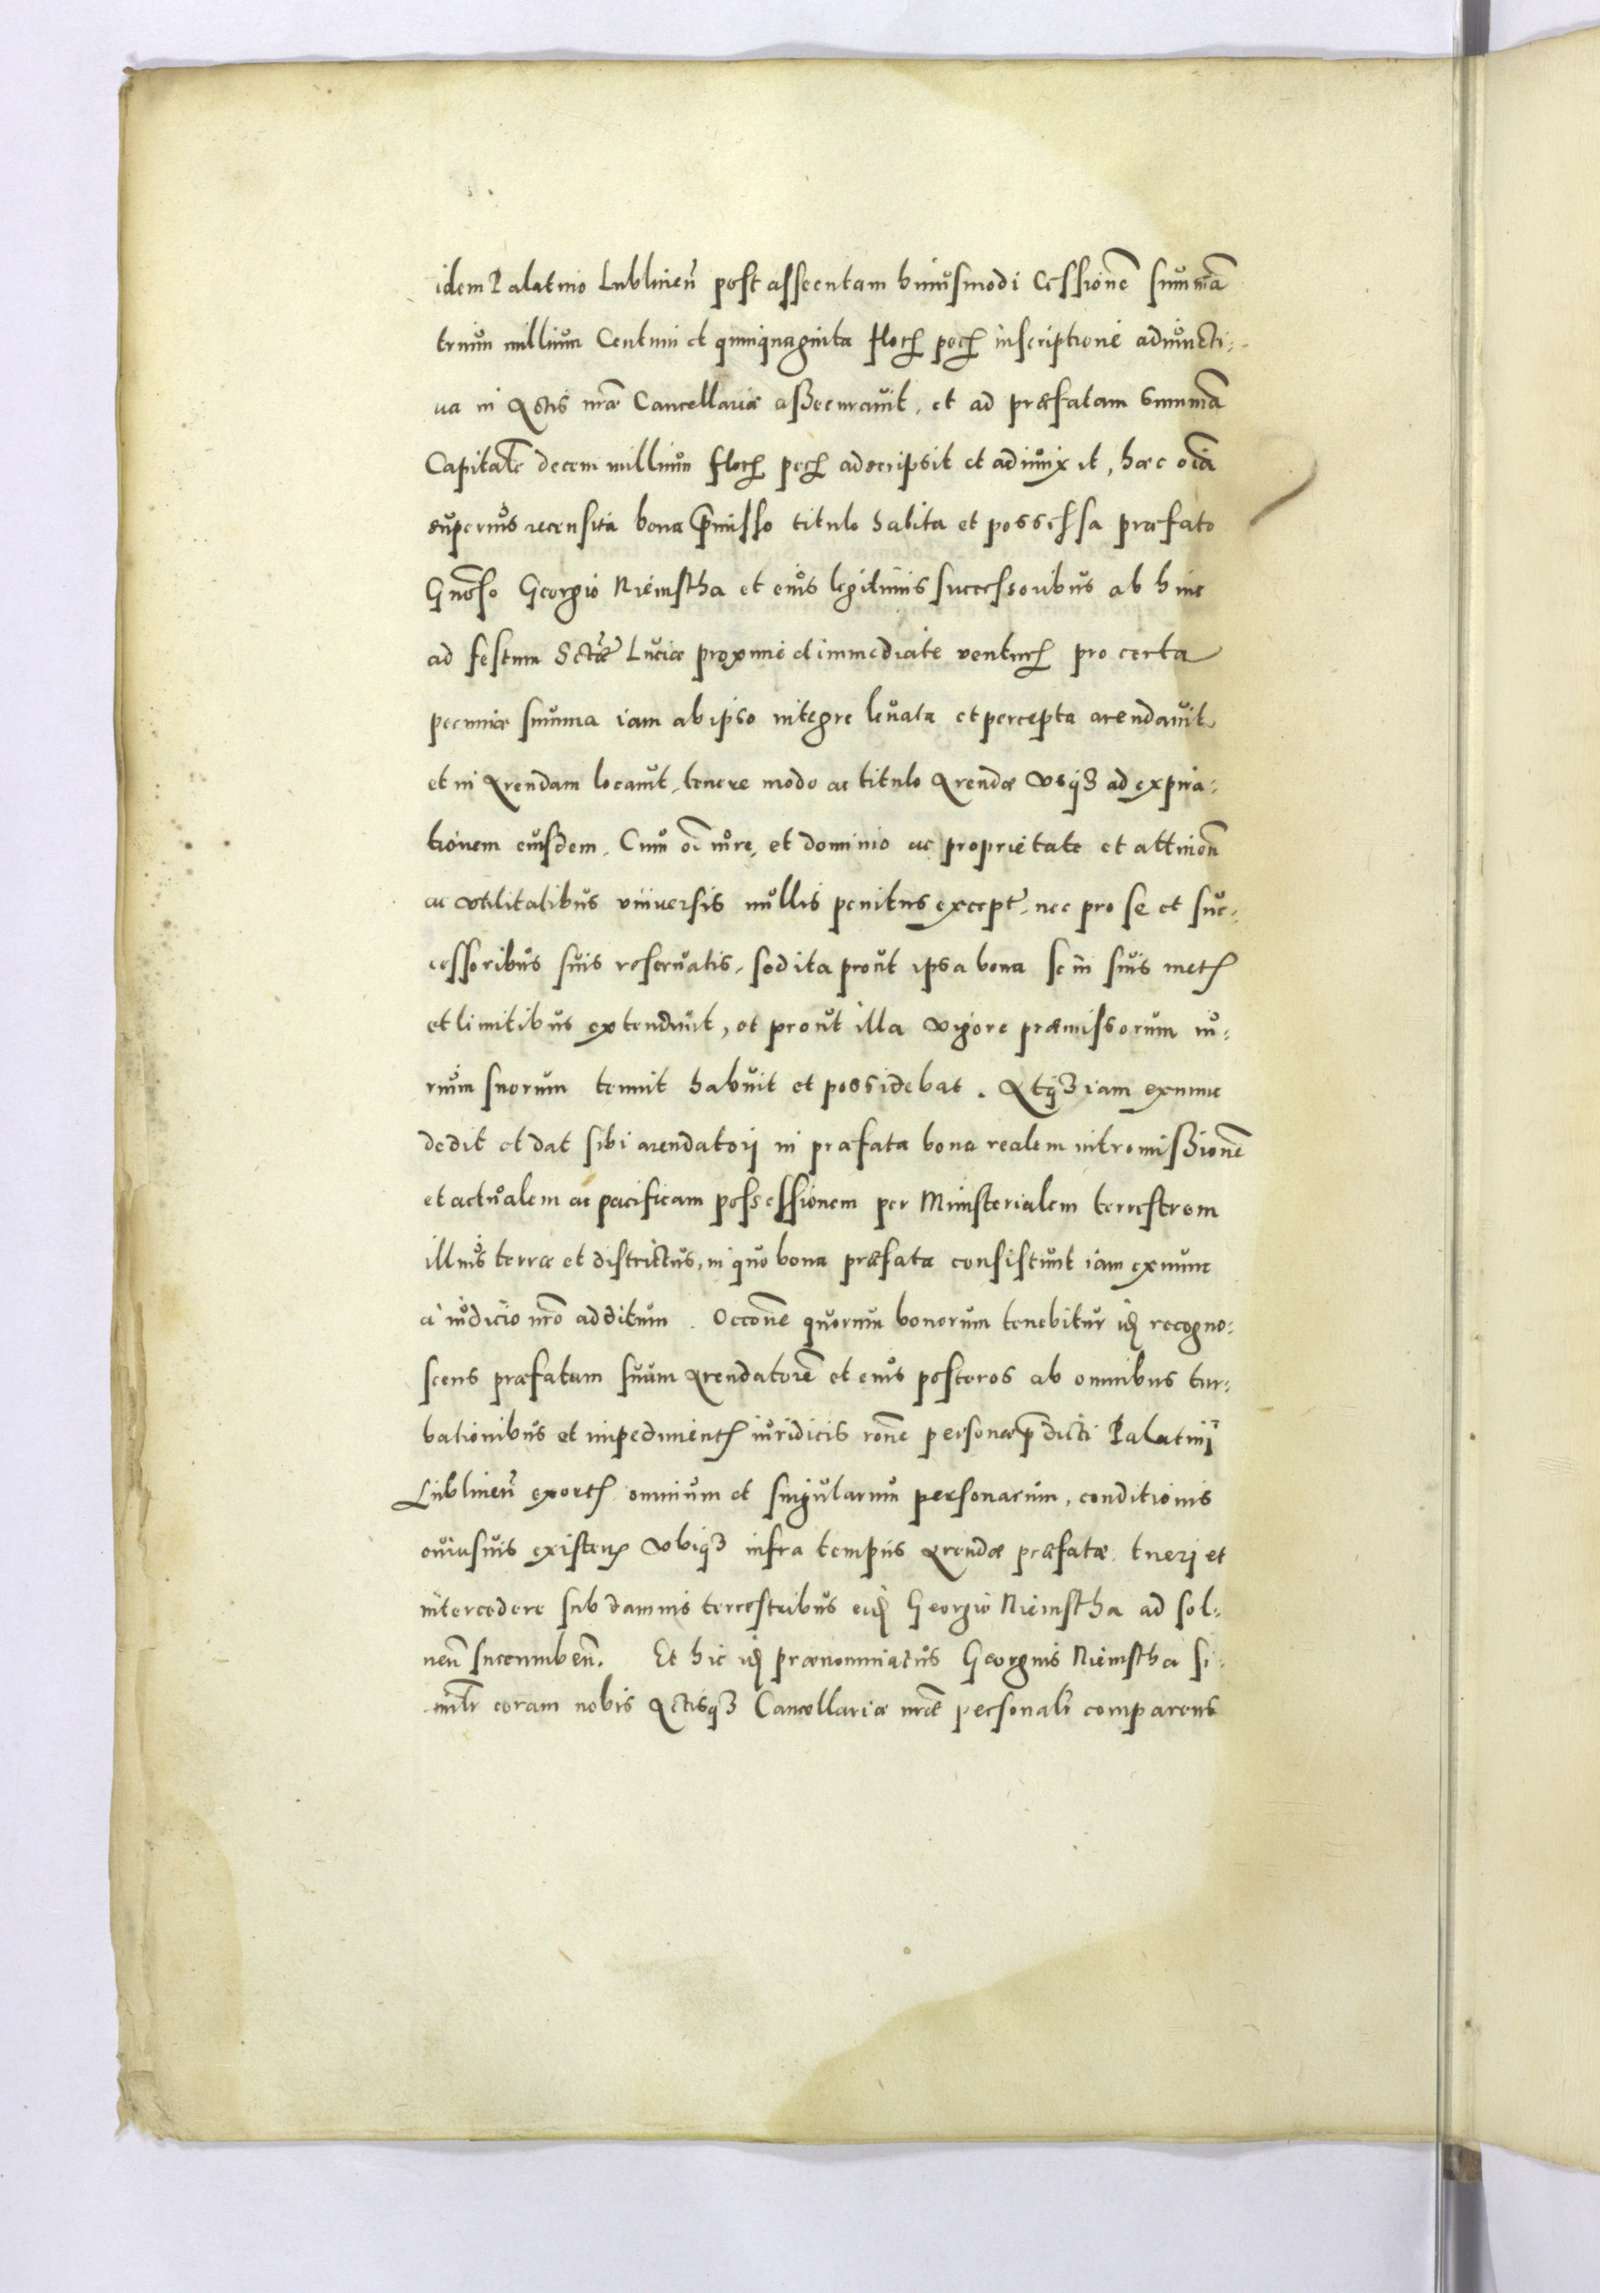 idem Palatino Lublineñ post assecutam huiusmodi Cessionē summā
trium millium Centum et quinquaginta floꝝ pecꝝ inscriptione adiuncti-
ua in Actis nr̄æ Cancellariæ assecurauit, et ad præfatam Summā
Capitalē decem millium floꝝ pecꝝ adscripsit et adiunxit, hæc oīa
superius recensita bona p̄misso titulo habita et possessa præfato
Gn̄oso Georgio Niemstha et eius legitimis successoribus ab hinc
ad festum Sctæ Luciæ proxime et immediate venturꝝ pro certa
pecuniæ summa iam ab ipso integre leuata et percepta arendauit
et in Arendam locauit, tenere modo ac titulo Arendæ vsqꝫ ad expira-
tionem eiusdem. Cum oī iure, et dominio ac proprietate et attinen̄
ac vtilitatibus vniuersis nullis penitus except. nec pro se et suc-
cessoribus suis reseruatis, sed ita prout ipsa bona se in suis metꝭ
et limitibus extendunt, et prout illa vigore præmissorum iu-
rium suorum tenuit habuit et possidebat. Atqꝫ iam exnunc
dedit et dat sibi arendatorj in præfata bona realem intromissionē
et actualem ac pacificam possessionem per Ministerialem terrestrem
illius terræ et districtus, in quo bona præfata consistunt iam exnunc
a iudicio nr̄o additum. Occōne quorum bonorum tenebitur idꝫ recogno-
scens præfatum suum Arendatorē et eius posteros ab omnibus tur-
bationibus et impedimentꝭ iuridicis rōne personæ p̄dicti Palatinj
Lublineñ exortꝭ omnium et singularum personarum, conditionis
cuiusuis existenꝭ vbiqꝫ infra tempus Arendæ præfatæ tuerj et
intercedere sub damnis terrestribus eidꝫ Georgio Niemstha ad sol-
uen̄ succumben̄. Et hic idꝫ prænominatus Georgius Niemstha si-
milr̄ coram nobis Actisqꝫ Cancellariæ nr̄æ personalr̄ comparens